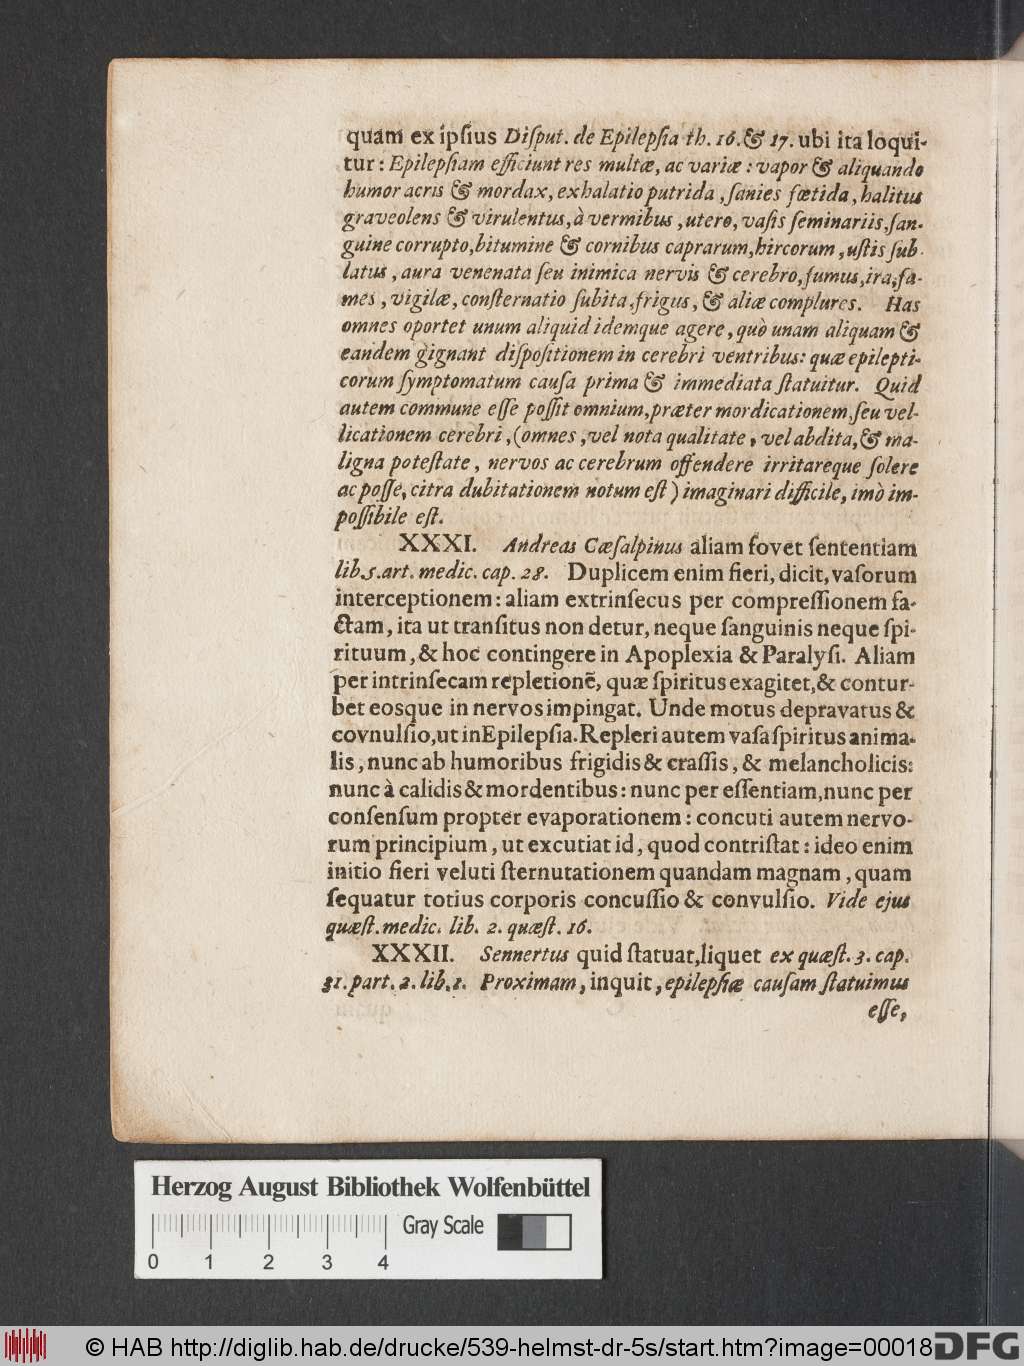 quam ex ipſius Diſput. de Epilepſia th. 16. & 17. ubi ita loqui-
tur: Epilepſiam efficiunt res multæ, ac variæ: vapor & aliquando
humor acris & mordax, exhalatio putrida, ſanies fœtida, halitus
graveolens & virulentus, à vermibus, utero, vaſis ſeminariis, ſan-
guine corrupto, bitumine & cornibus caprarum, hircorum, uſtis ſub-
latus, aura venenata ſeu inimica nervis & cerebro, fumus, ira, fa-
mes, vigilæ, conſternatio ſubita, frigus, & aliæ complures. Has
omnes oportet unum aliquid idemque agere, quò unam aliquam &
eandem gignant diſpoſitionem in cerebri ventribus: quæ epilepti-
corum ſymptomatum cauſa prima & immediata ſtatuitur. Quid
autem commune eſſe poſſit omnium, præter mordicationem, ſeu vel-
licationem cerebri, (omnes, vel nota qualitate, vel abdita, & ma-
ligna poteſtate, nervos ac cerebrum offendere irritareque ſolere
ac poſſe, citra dubitationem notum eſt) imaginari difficile, imò im-
poſſibile eſt.
XXXI. Andreas Cæſalpinus aliam fovet ſententiam
lib. 5. art. medic. cap. 28. Duplicem enim fieri, dicit, vaſorum
interceptionem: aliam extrinſecus per compreſſionem fa-
ctam, ita ut tranſitus non detur, neque ſanguinis neque ſpi-
rituum, & hoc contingere in Apoplexia & Paralyſi. Aliam
per intrinſecam repletionē, quæ ſpiritus exagitet, & contur-
bet eosque in nervos impingat. Unde motus depravatus &
covnulſio, ut in Epilepſia. Repleri autem vaſa ſpiritus anima-
lis, nunc ab humoribus frigidis & craſſis, & melancholicis:
nunc à calidis & mordentibus: nunc per eſſentiam, nunc per
conſenſum propter evaporationem: concuti autem nervo-
rum principium, ut excutiat id, quod contriſtat: ideo enim
initio fieri veluti ſternutationem quandam magnam, quam
ſequatur totius corporis concuſſio & convulſio. Vide ejus
quæſt. medic. lib. 2. quæſt. 16.
XXXII. Sennertus quid ſtatuat, liquet ex quæſt. 3. cap.
31. part. 2. lib. 1. Proximam, inquit, epilepſiæ cauſam ſtatuimus
eſſe,
Herzog August Bibliothek Wolfenbüttel
Gray Scale
0 1 2 3 4
© HAB http://diglib.hab.de/drucke/539-helmst-dr-5s/start.htm?image=00018
DFG